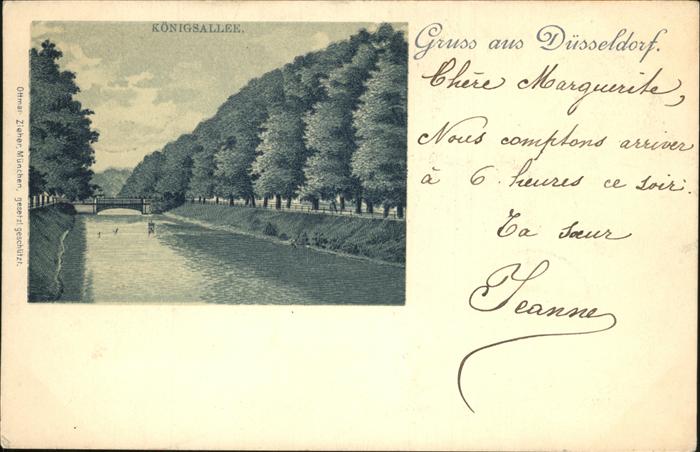 KÖNIGSALLEE.
Gruss aus Düsseldorf.
Chère Marguerite,
Nous comptons arriver
à 6 heures ce soir.
Ta sœur
Jeanne
Ottmar Zieher, München, gesetzl. geschützt.